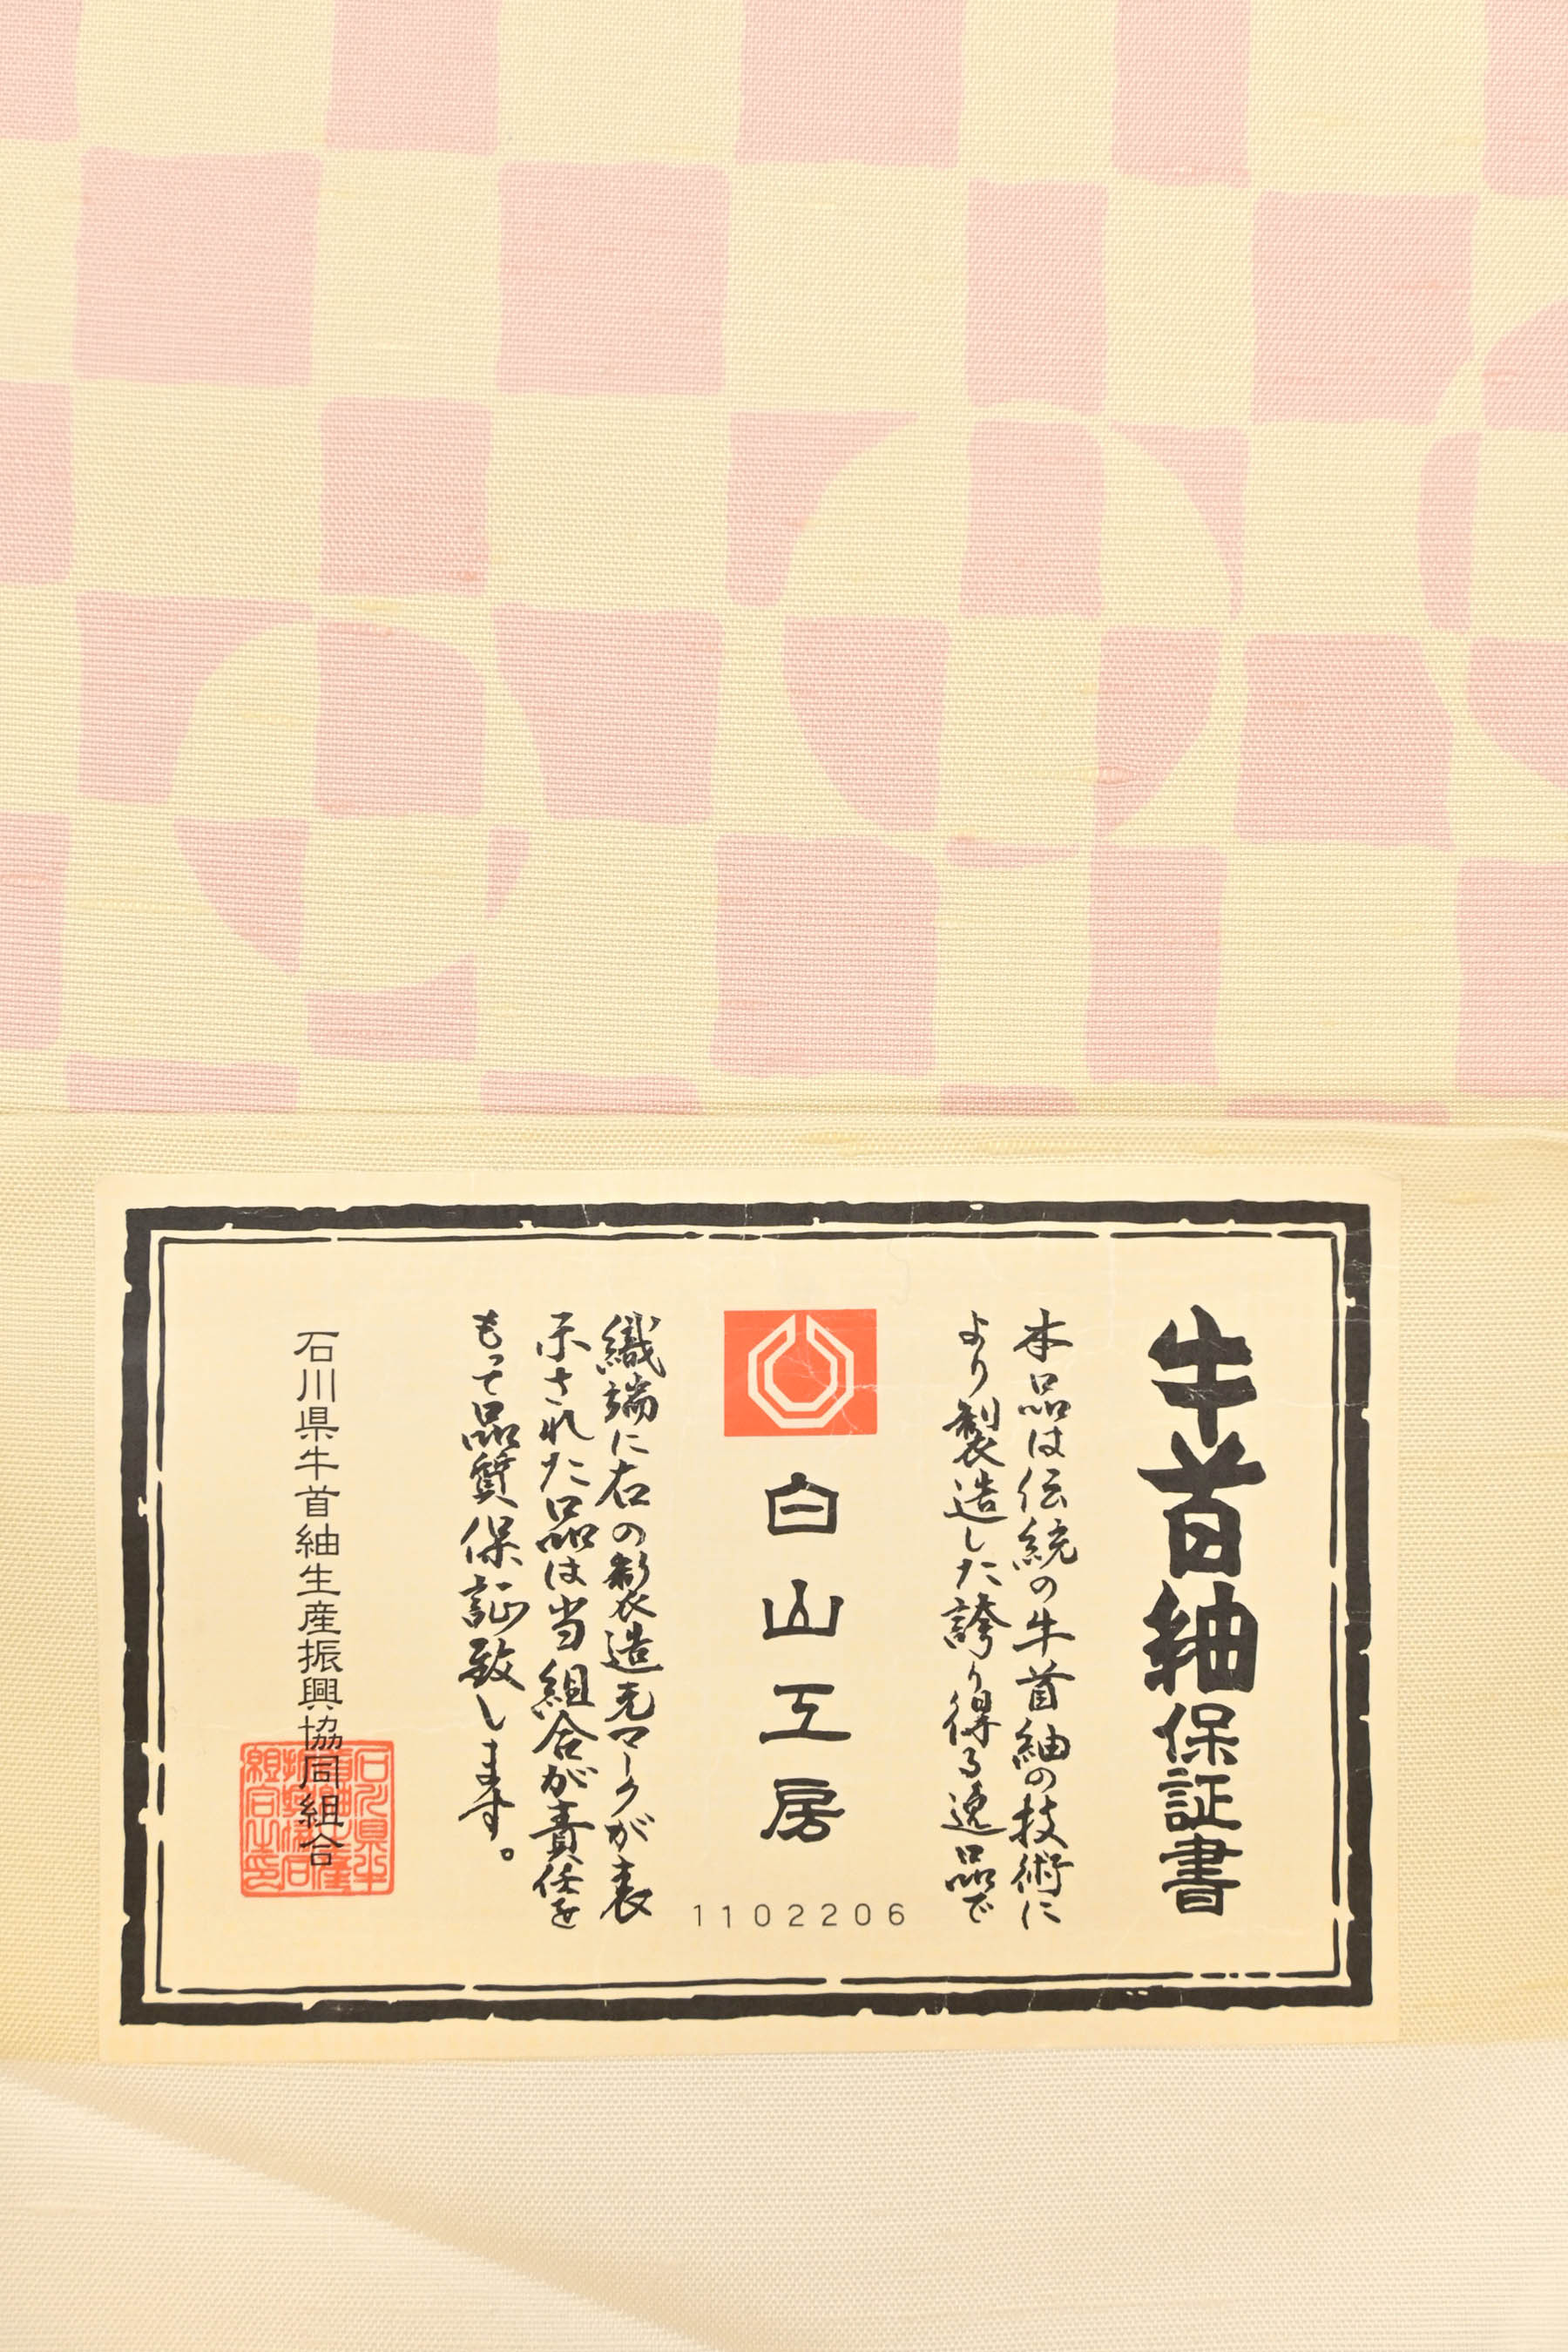 牛首紬保証書
本品は伝統の牛首紬の技術に
より製造した誇り得る逸品で
白山工房
1102206
織端に右の製造元マークが表
示された品は当組合が責任を
もって品質保証致します。
石川県牛首紬生産振興協同組合